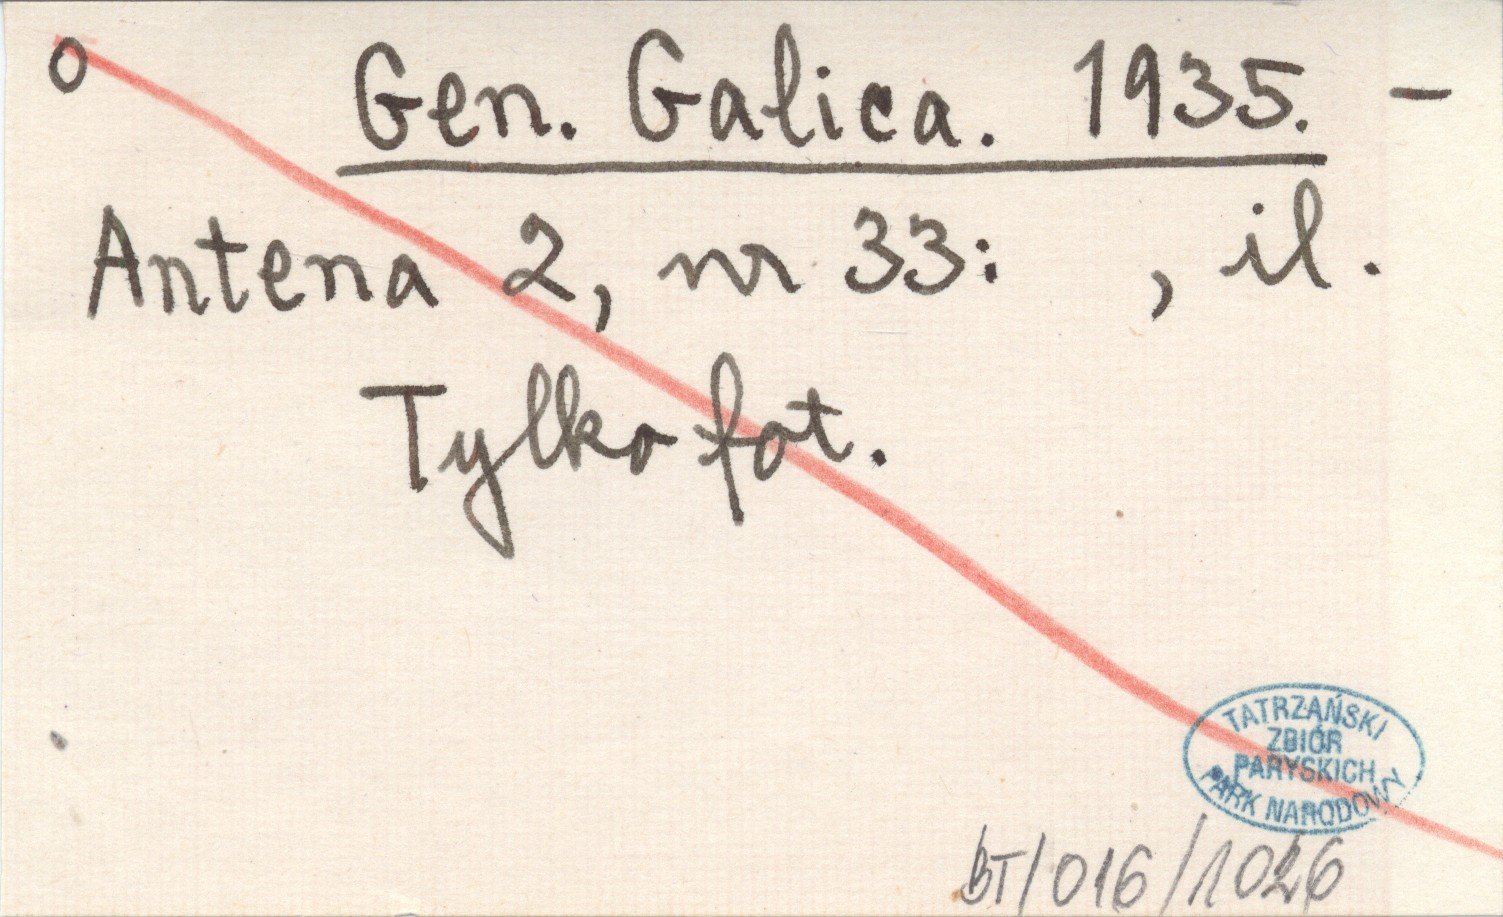 o Gen. Galica. 1935. –
Antena 2, nr 33: , il.
Tylko fot.
TATRZAŃSKI
ZBIÓR
PARYSKICH
PARK NARODOWY
BT/016/1026